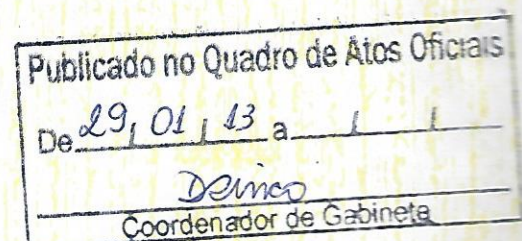 Publicado no Quadro de Atos Oficiais
De 29, 01, 13 a / /
Coordenador de Gabinete